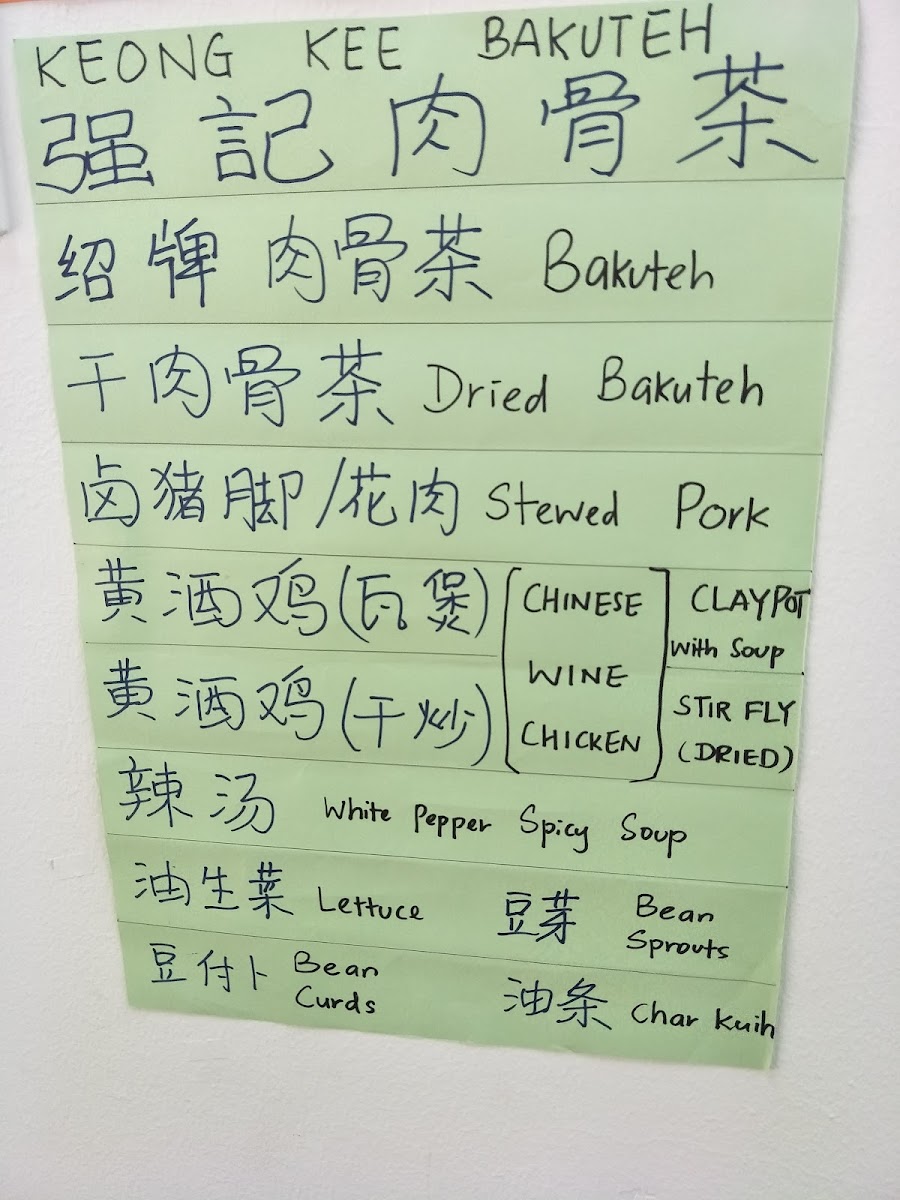 KEONG KEE BAKUTEH
强記肉骨茶
绍牌 肉骨茶 Bakuteh
干肉骨茶 Dried Bakuteh
卤猪脚/花肉 Stewed Pork
黄酒鸡(瓦煲) [CHINESE WINE CHICKEN] CLAYPOT with Soup
黄酒鸡(干炒) STIR FLY (DRIED)
辣汤 White Pepper Spicy Soup
油生菜 Lettuce 豆芽 Bean Sprouts
豆付卜 Bean Curds 油条 Char Kuih